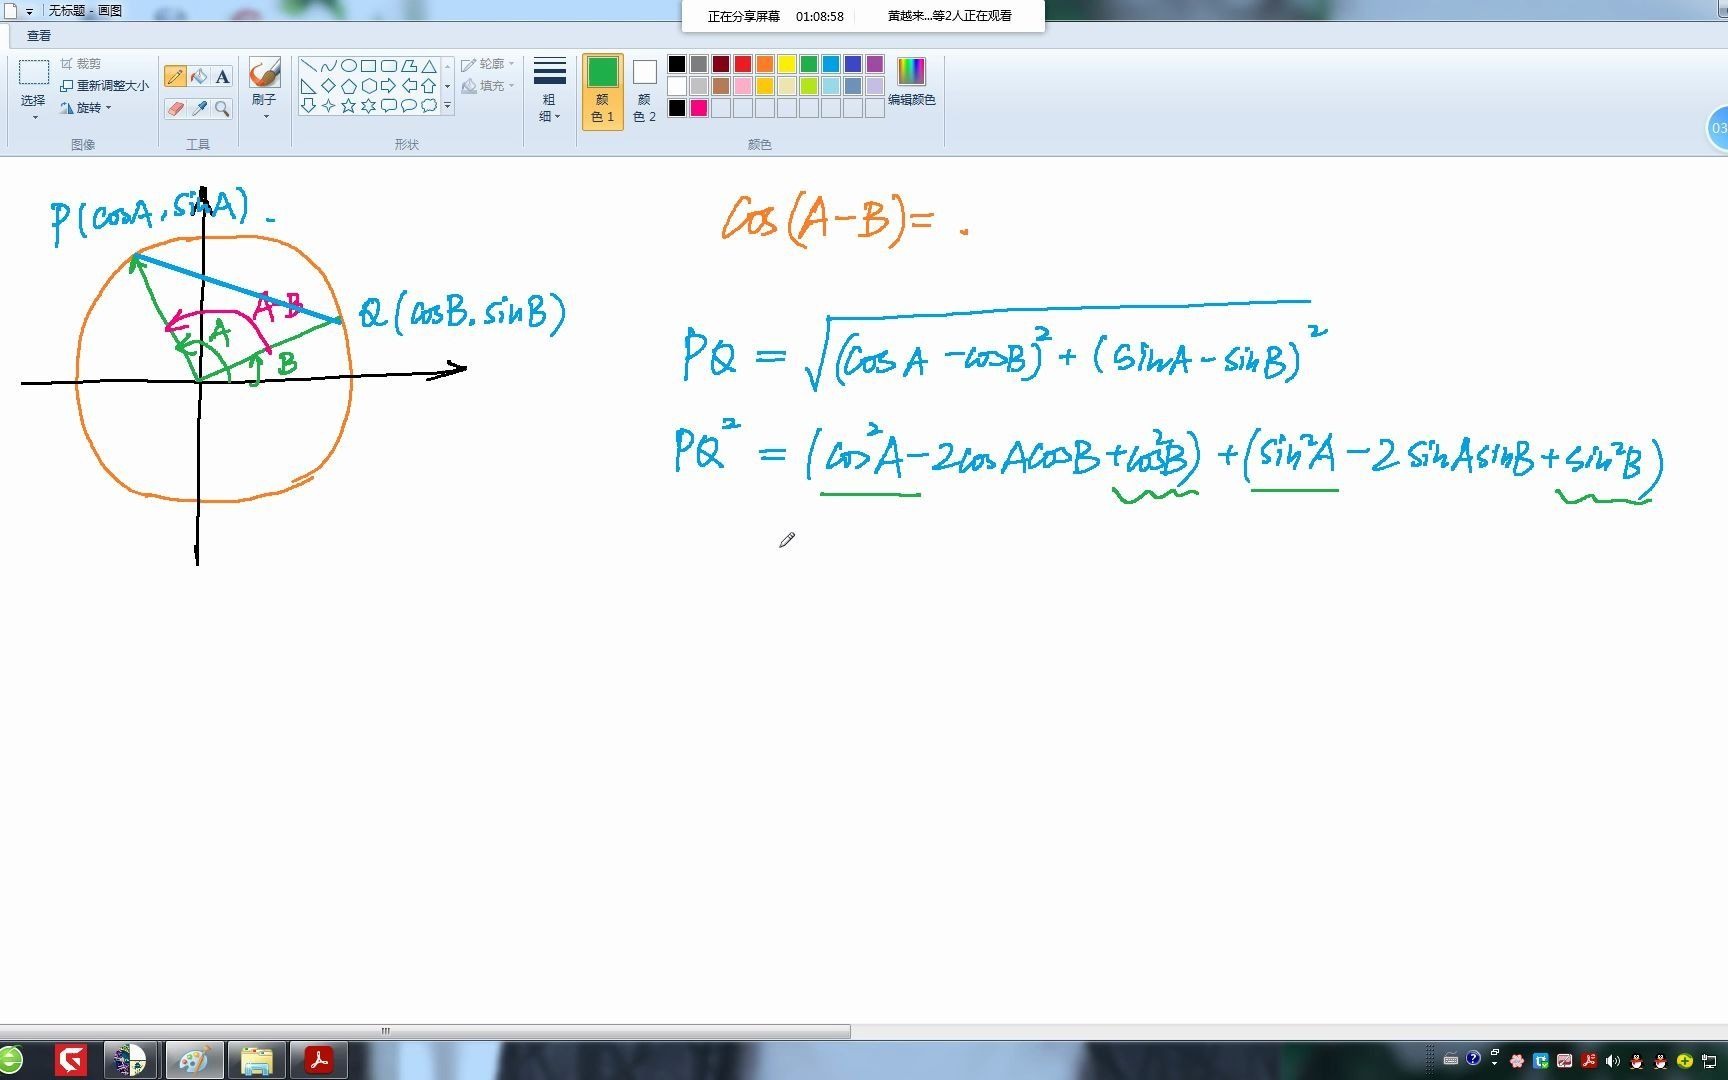 无标题 - 画图
正在分享屏幕 01:08:58 黄越来...等2人正在观看
查看
选择
裁剪
重新调整大小
旋转
图像
A
工具
刷子
形状
轮廓
填充
粗细
颜色 1
颜色 2
编辑颜色
颜色
03
P(cosA, sinA).
A-B
A
B
Q(cosB. sinB)
Cos(A-B)= .
PQ = √(cosA - cosB)² + (sinA - sinB)²
PQ² = (cos²A - 2cosAcosB + cos²B) + (sin²A - 2sinAsinB + sin²B)